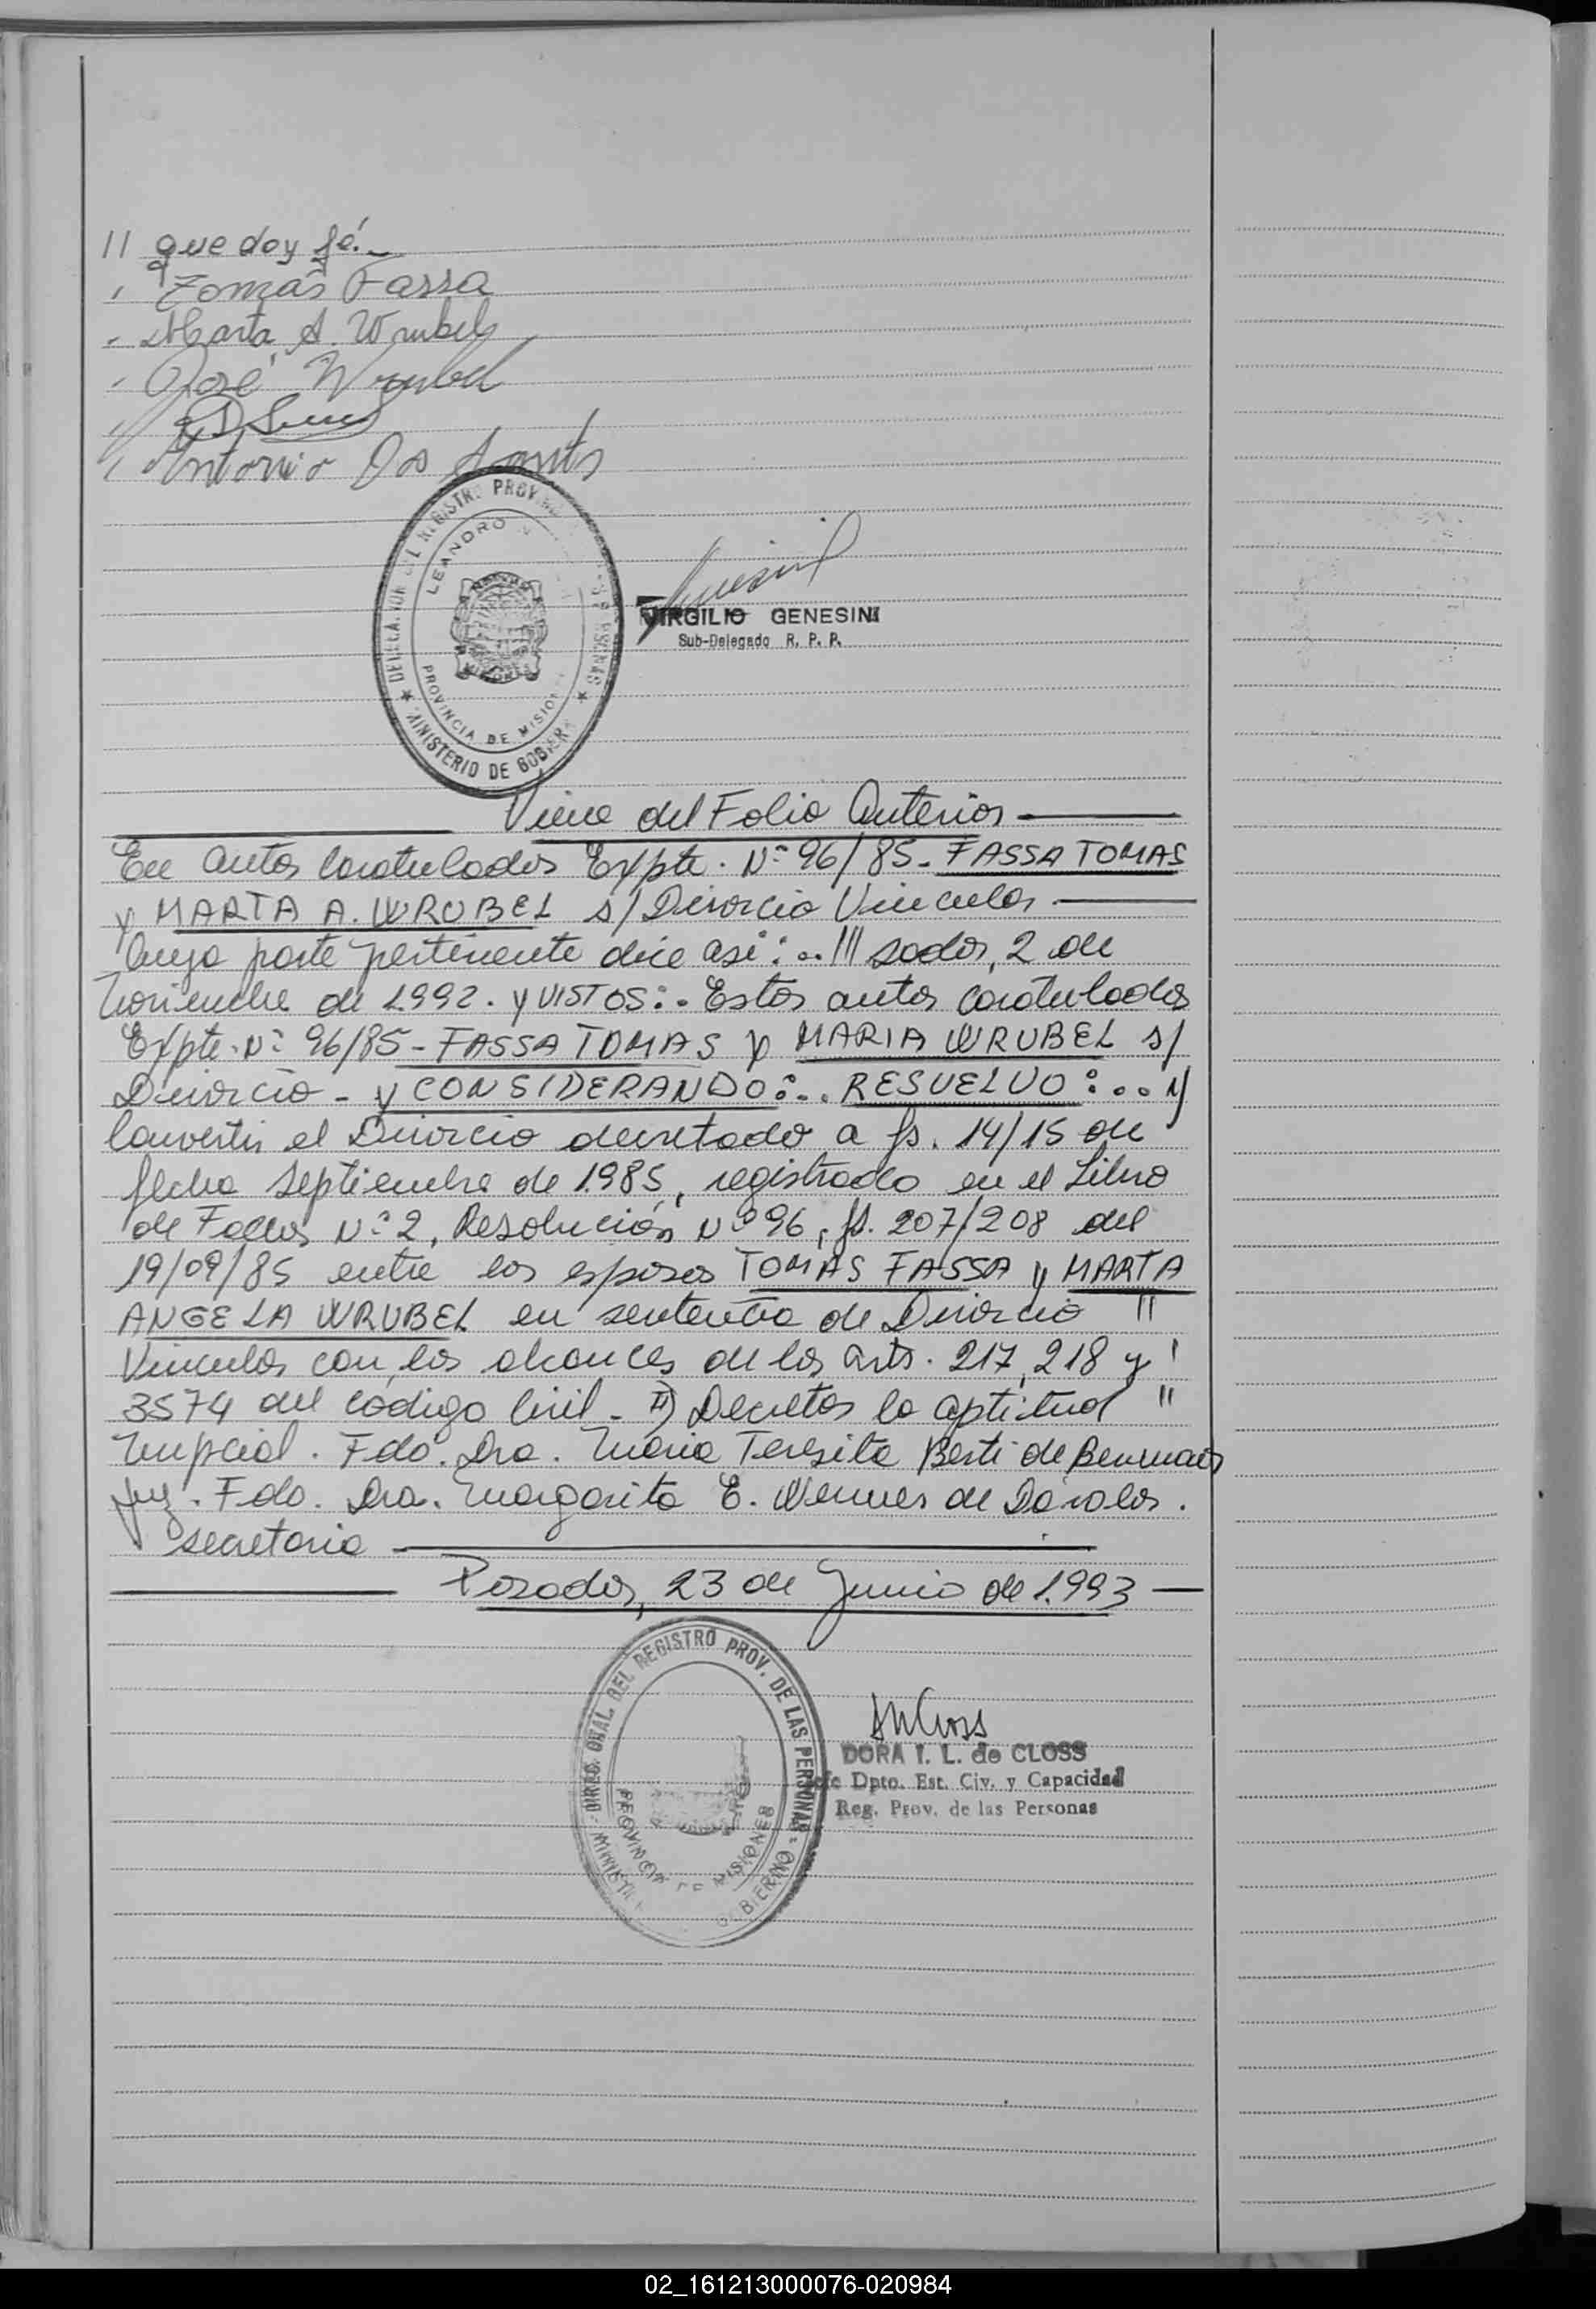 // que doy fé.-
Tomás Fassa
Marta A. Wrubel
José Wrubel
Antonio Dos Santos
DELEGACION DEL REGISTRO PROV. DE LAS PERSONAS
LEANDRO N.
PROVINCIA DE MISIONES
MINISTERIO DE GOBIERNO
VIRGILIO GENESINI
Sub-Delegado R. P. P.
Viene del Folio Anterior
En autos caratulados Expte. Nº 96/85- FASSA TOMAS
y MARTA A. WRUBEL s/ Divorcio Vincular
Cuya parte pertinente dice así: ..///sadas, 2 de
noviembre de 1.992. y VISTOS:. Estos autos caratulados
Expte. Nº 96/85 - FASSA TOMAS y MARIA WRUBEL s/
Divorcio - y CONSIDERANDO:.. RESUELVO:...
Convertir el Divorcio decretado a fs. 14/15 de
fecha septiembre de 1.985, registrado en el Libro
de Fallos Nº 2, Resolución Nº 96, fs. 207/208 del
19/09/85 entre los esposos TOMAS FASSA y MARTA
ANGELA WRUBEL en sentencia de Divorcio "
Vincular con los alcances de los arts. 217, 218 y
3574 del código Civil - II) Decretar la aptitud "
nupcial. Fdo. Dra. María Teresita Berti de
Juez. Fdo. Dra. Margarita E. de Dávalos.
secretaria
Posadas, 23 de Junio de 1.993
DIREC. GRAL. DEL REGISTRO PROV. DE LAS PERSONAS
PROVINCIA DE MISIONES
MINISTERIO GOBIERNO
DORA I. L. de CLOSS
Jefe Dpto. Est. Civ. y Capacidad
Reg. Prov. de las Personas
02_161213000076-020984